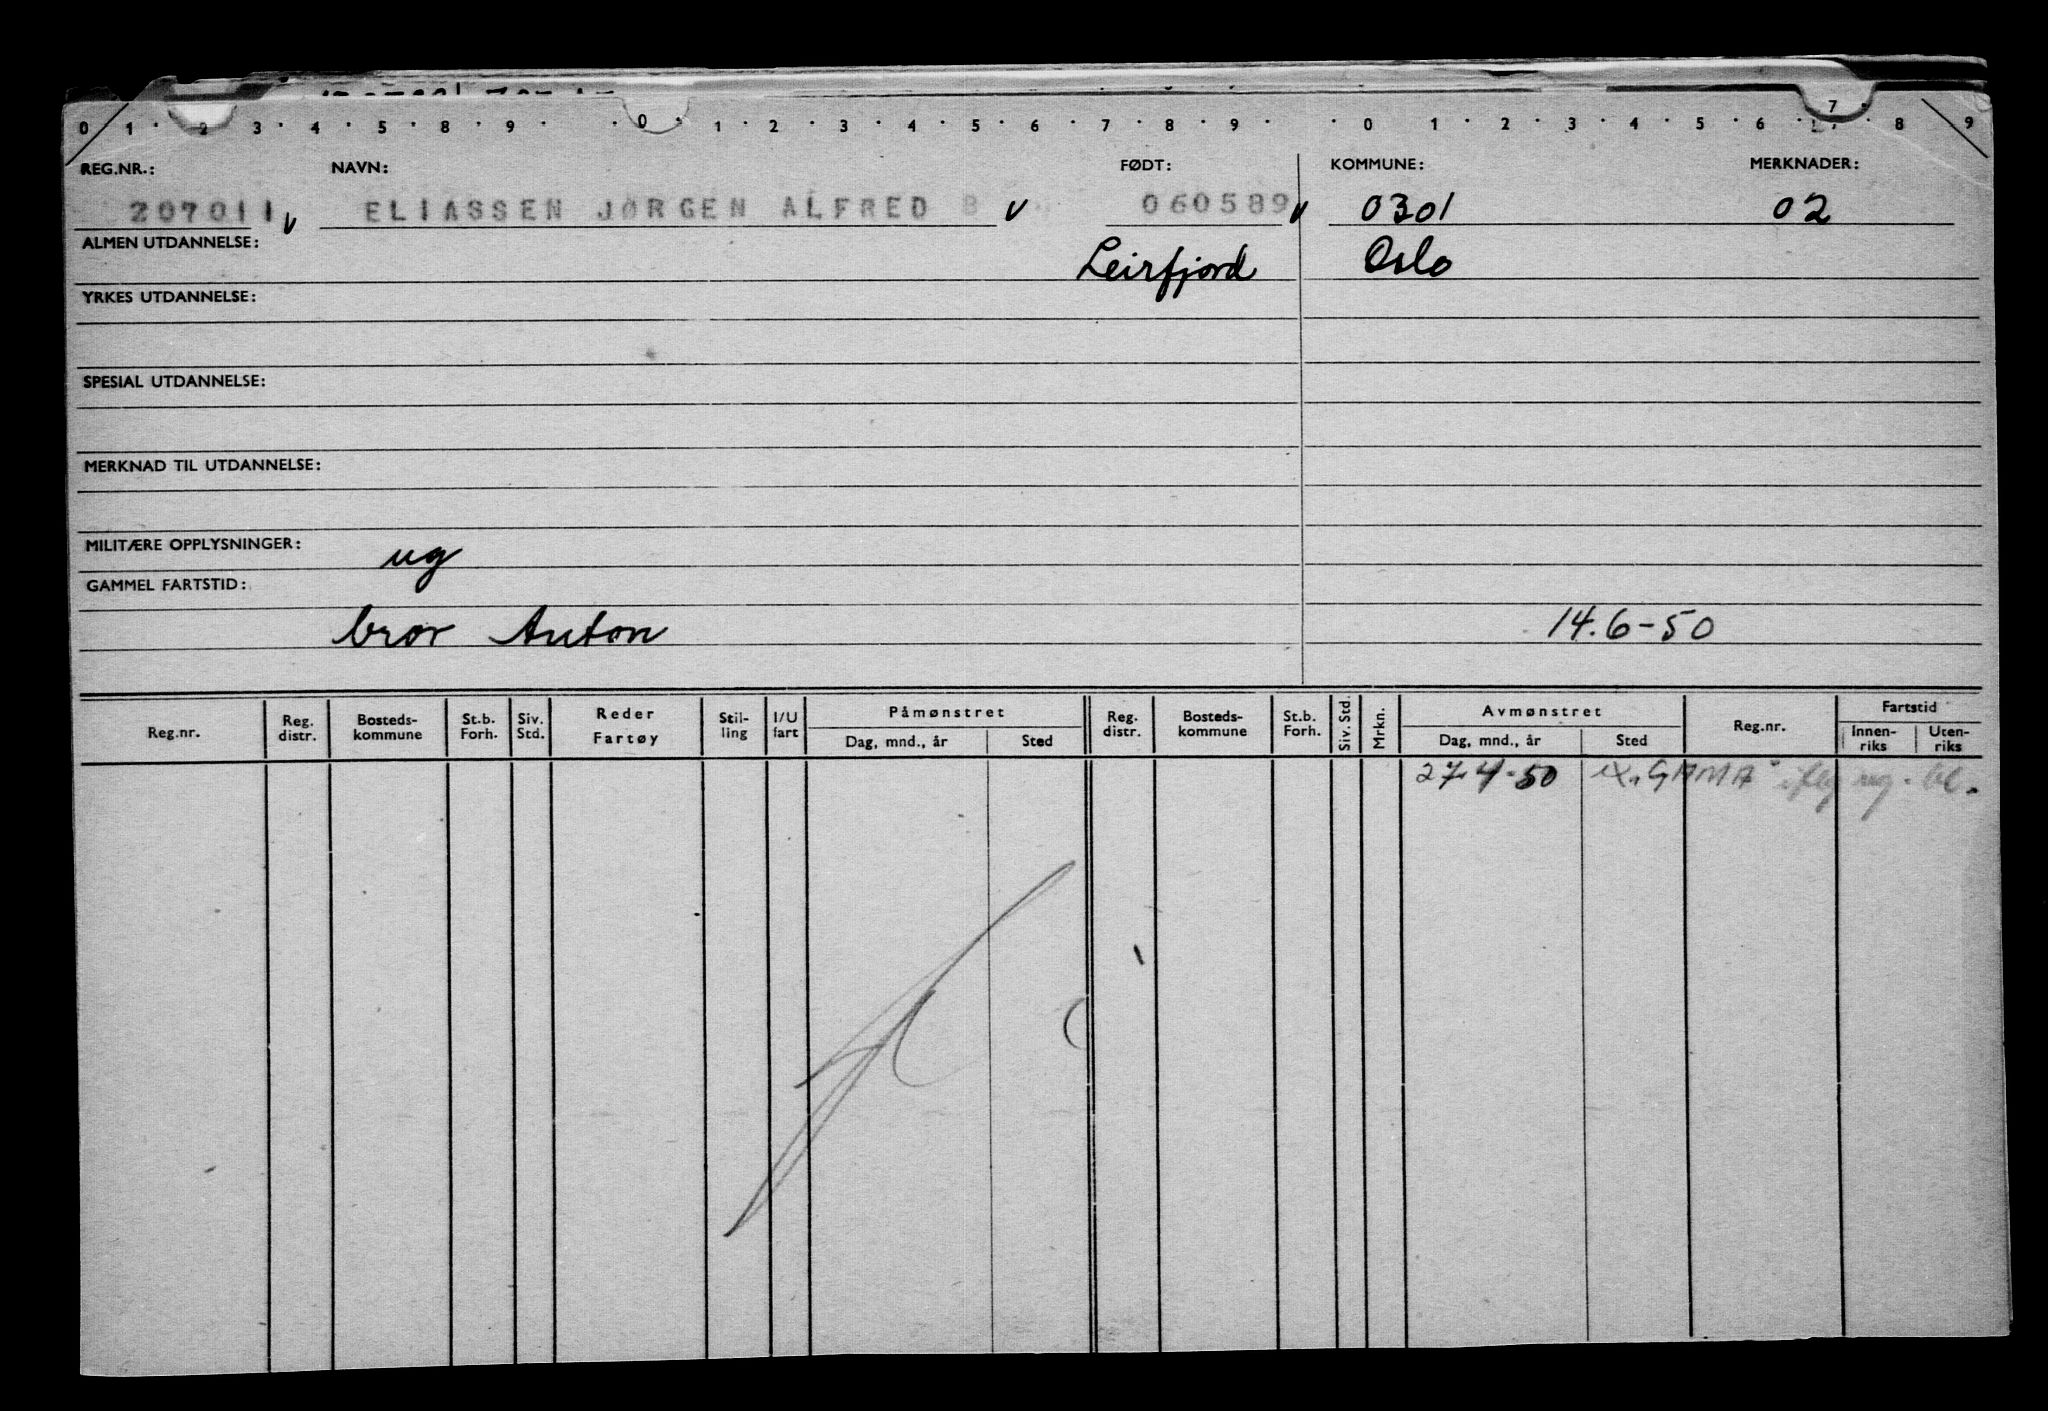 0 1 · 2 3 · 4 · 5 · 8 · 9 · · 0 · 1 · 2 · 3 · 4 · 5 · 6 · 7 · 8 · 9 · · 0 · 1 · 2 · 3 · 4 · 5 · 6 · 7 · 8 · 9
REG.NR.: NAVN: FØDT: KOMMUNE: MERKNADER:
207011 v ELIASSEN JØRGEN ALFRED B v 060589 v 0301 02
ALMEN UTDANNELSE: Leirfjord Oslo
YRKES UTDANNELSE:
SPESIAL UTDANNELSE:
MERKNAD TIL UTDANNELSE:
MILITÆRE OPPLYSNINGER: ug
GAMMEL FARTSTID:
bror Anton 14.6-50
Reg.nr. Reg. distr. Bosteds-kommune St.b. Forh. Siv. Std. Reder Fartøy Stil-ling I/U fart Påmønstret Dag, mnd., år Sted Reg. distr. Bosteds-kommune St.b. Forh. Siv. Std. Mrkn. Avmønstret Dag, mnd., år Sted Reg.nr. Fartstid Innen-riks Uten-riks
27-4-50 "GAMA"